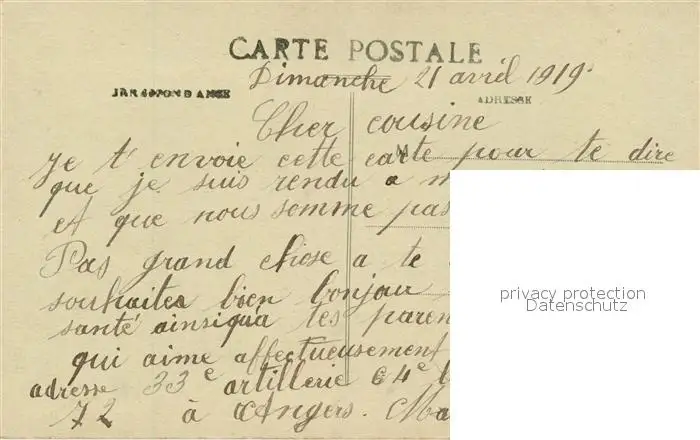 CARTE POSTALE
Dimanche 21 avril 1919
ADRESSE
Cher cousine
je t'envoie cette carte pour te dire
que je suis rendu a
et que nous somme pas
Pas grand chose a te
souhaites bien bonjour
santé ainsiqua tes paren
qui aime affectueusement
adresse 33e artillerie 64e
72 à Angers. Ma
privacy protection
Datenschutz